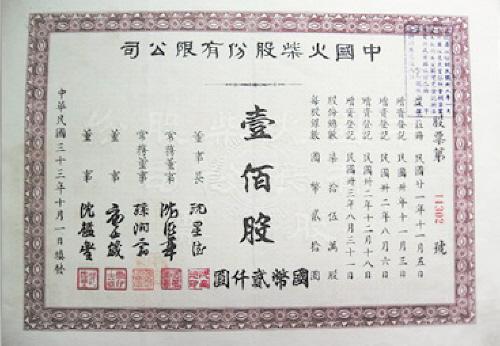 中國火柴股份有限公司
股票第 11302 號
註冊 民國廿一年十一月五日
增資登記 民國卅年十一月三日
增資登記 民國卅二年八月六日
增資登記 民國卅二年十二月十八日
增資登記 民國卅三年八月三十一日
股份總數 柒拾伍萬股
每股銀數 國幣貳拾圓
壹佰股
國幣貳仟圓
董事長
常務董事
常務董事
董事
董事
中華民國三十三年十月一日填發